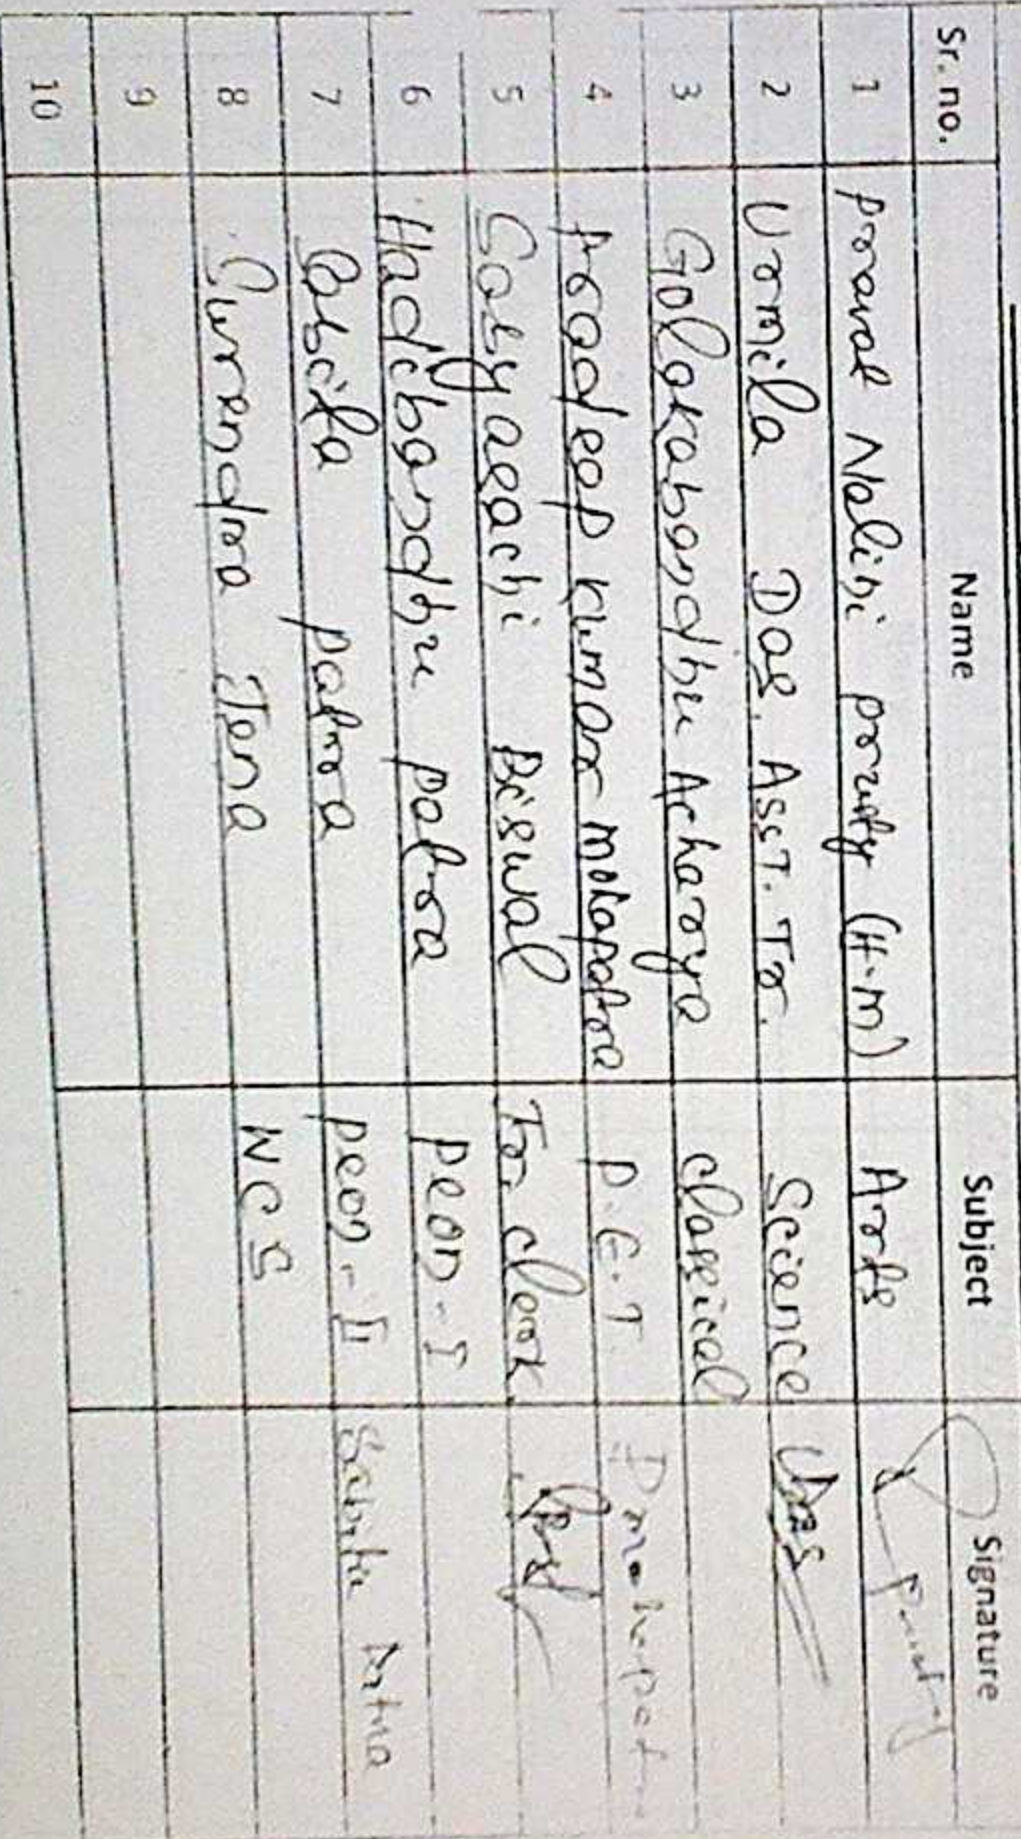 Sr. no. Name Subject Signature
1 Pravat Nalini prusty (H.M) Arts
2 Urmila Das. Asst. Tr. Science Das
3 Golakabandhu Acharya classical
4 Pradeep Kumar Mohapatra P.E.T
5 Satyabachi Biswal Jr. clerk
6 Hadibandhu patra peon-I
7 Sabita patra peon-II Sabita Patra
8 Surendra Jena NCS
9
10